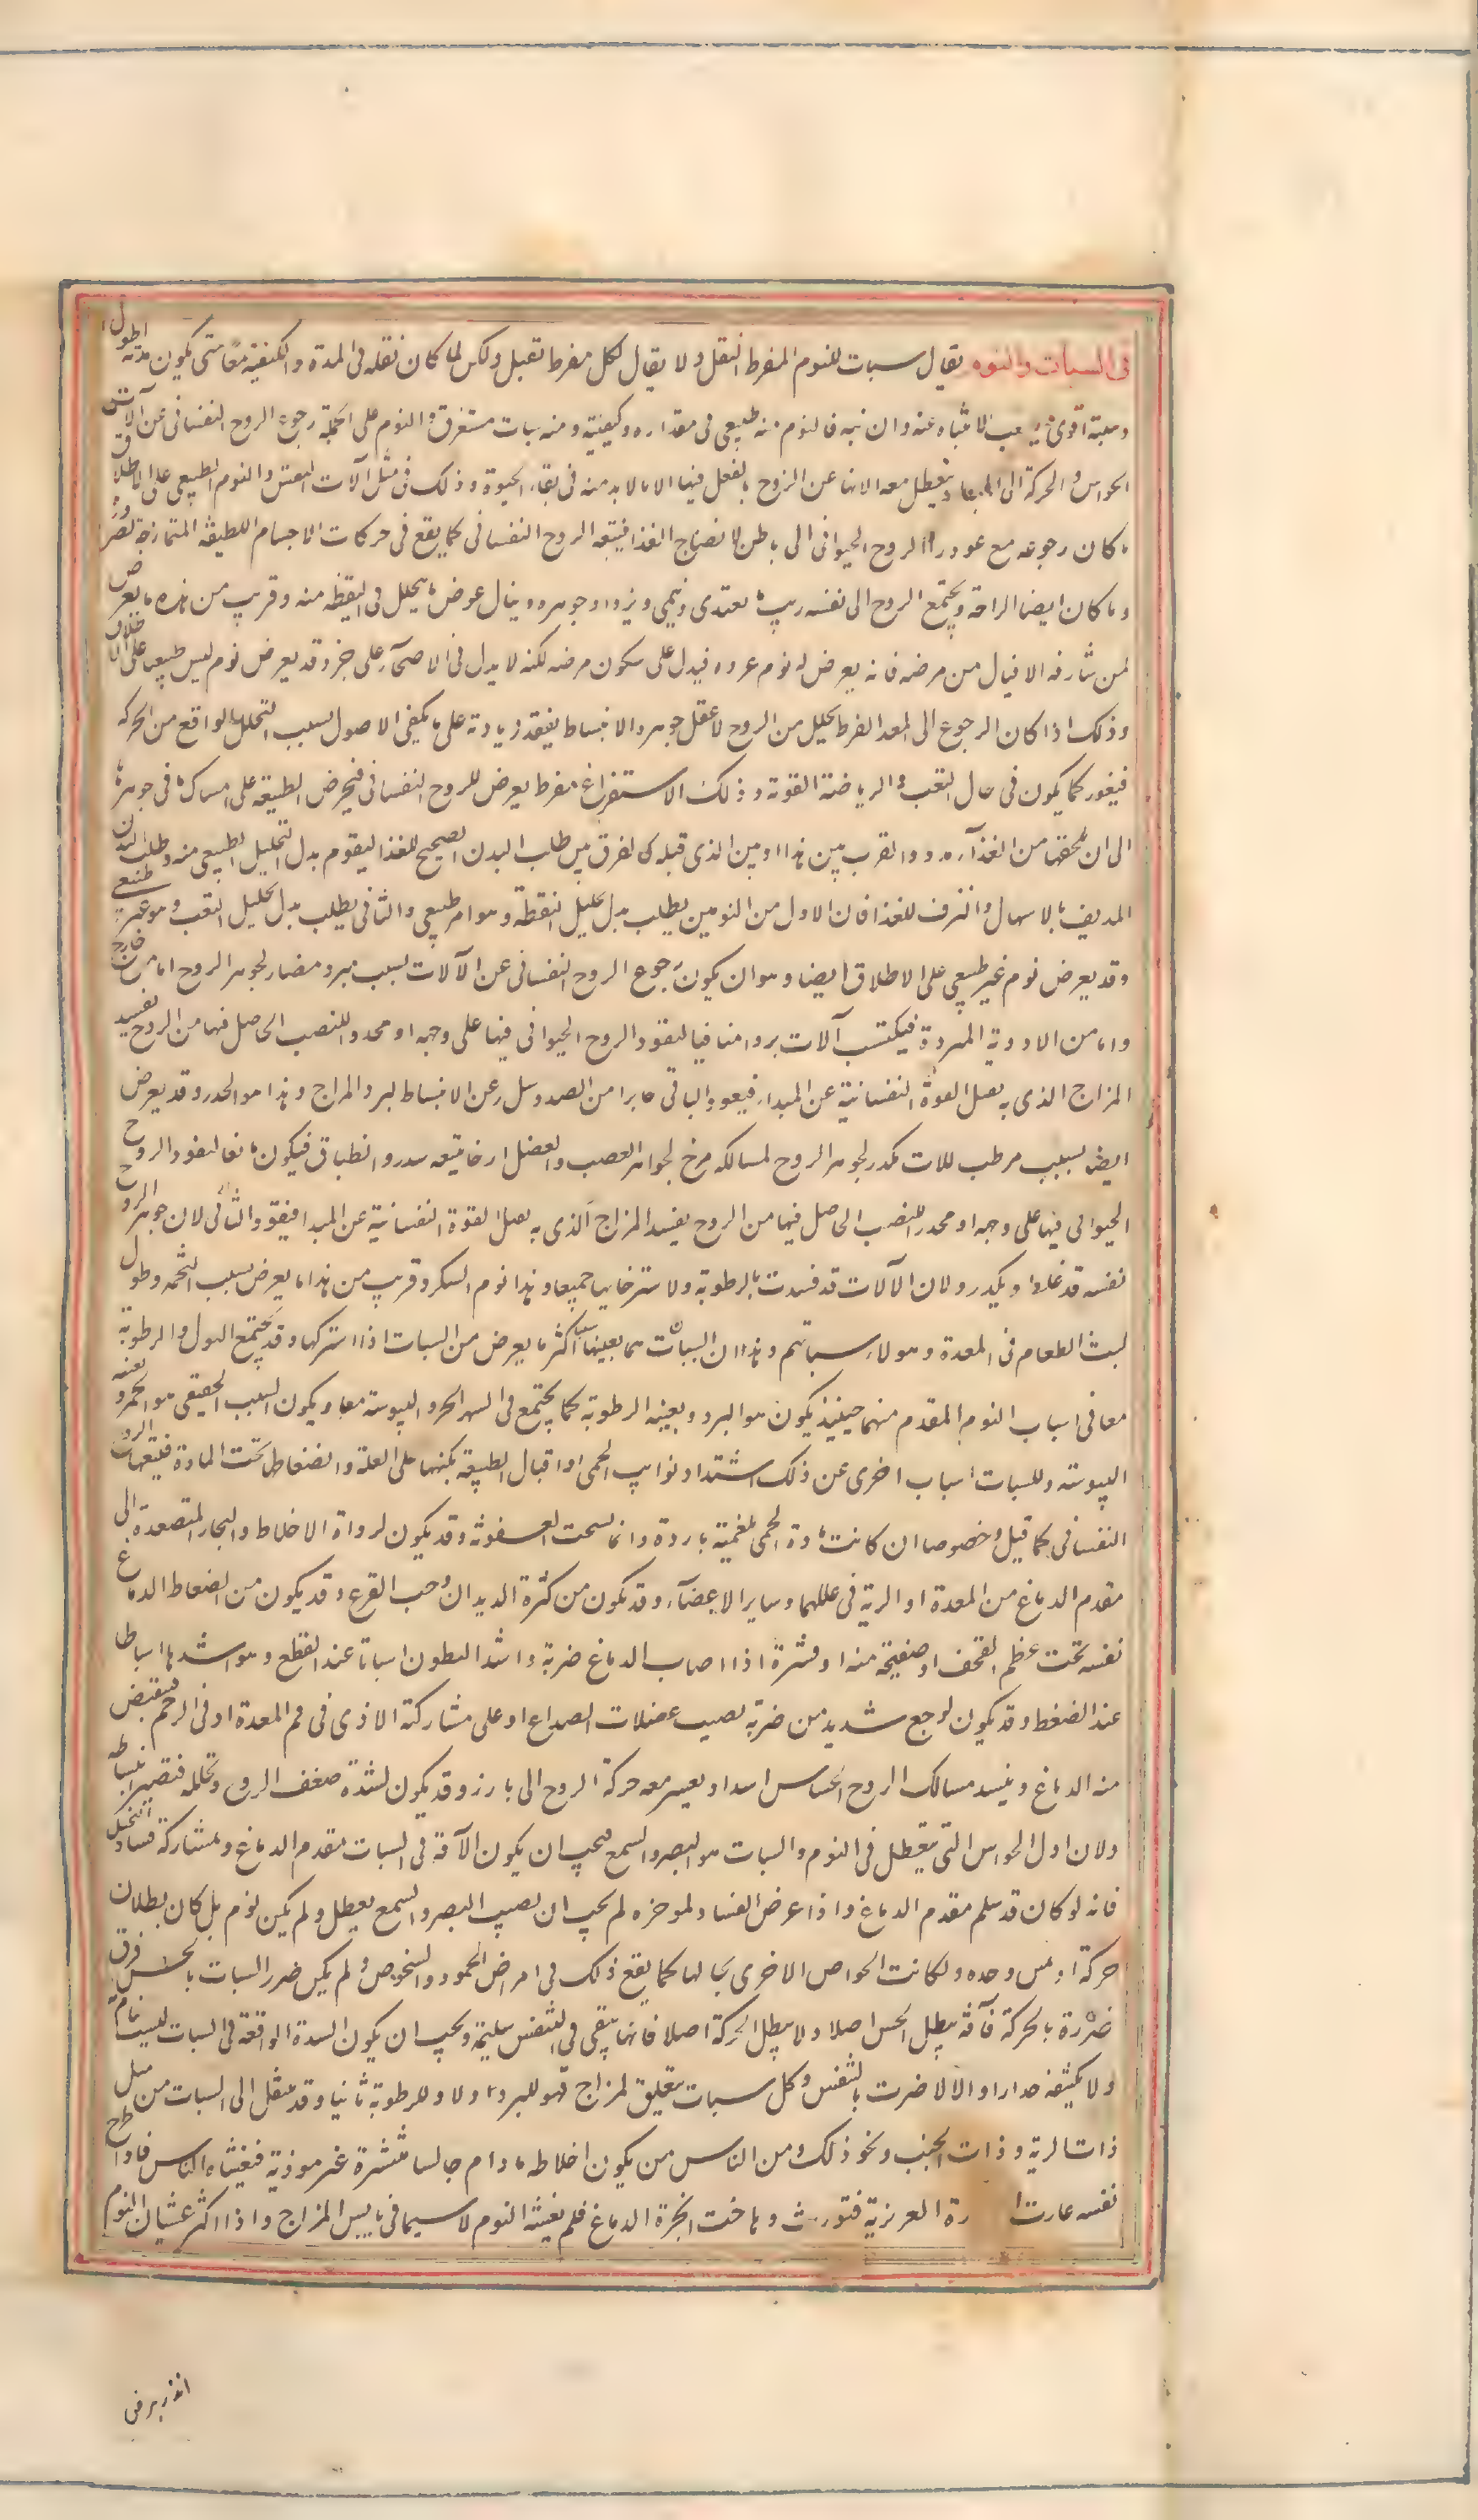 فى السبات والنوم يقال سبات للنوم المفرط الثقل ولا يقال لكل مفرط ثقيل ولكن لما كان ثقله فى المدة والكيفية معا حتى يكون مدته اطول
وهيئته اقوى فيصعب الانتباه عنه وان نبه فالنوم منه طبيعى فى مقداره وكيفيته ومنه سبات مستغرق والنوم على الجملة رجوع الروح النفسانى عن آلات
الحواس والحركة الى المبدأ يتعطل معه الاتها عن الروح بالفعل فيها الا ما لا بد منه فى بقاء الحيوة وذلك فى مثل آلات النفس والنوم الطبيعى على الاطلاق
ما كان رجوعه مع غور الروح الحيوانى الى باطن لانضاج الغذا فيتبعه الروح النفسانى كما يقع فى حركات الاجسام اللطيفة المتمازجة لضرورة
وما كان ايضا للراحة ويجتمع الروح الى نفسه ريث ما يغتذى وينمى ويزداد جوهره وينال عوض ما تحلل فى اليقظة منه وقريب من هذه ما يعرض
لمن شارف الاقبال من مرضه فانه يعرض له نوم غرق فيدل على سكون مرضه لكنه لا يدل فى الاصحآء على خير وقد يعرض نوم ليس طبيعيا على الاطلاق
وذلك اذا كان الرجوع الى المبدأ لفرط تحلل من الروح لا يحتمل جوهره الانبساط لفقد زيادة على ما يكفى الاصول لسبب التحلل الواقع من الحركة
فيغور كما يكون فى حال التعب والرياضة القوية وذلك لاستفراغ مفرط يعرض للروح النفسانى فتحرص الطبيعة على امساك ما فى جوهرها
الى ان يلحقها من الغذآء مدد والفرق بين هذا وبين الذى قبله كالفرق بين طلب البدن الصحيح للغذا ليقوم بدل التحليل الطبيعى منه وطلب البدن
المدنف بالاسهال والنزف للغذا فان الاول من النومين يطلب بدل تحليل اليقظة وهو امر طبيعى والثانى يطلب بدل تحليل التعب وهو غير طبيعى
وقد يعرض نوم غير طبيعى على الاطلاق ايضا وهو ان يكون رجوع الروح النفسانى عن الآلات بسبب مبرد مضاد لجوهر الروح اما من خارج
واما من الادوية المبردة فيكتسب آلات بردا منافيا لنفوذ الروح الحيوانى فيها على وجهه او مخدر للنصب الحاصل فيها من الروح يفسد
المزاج الذى به يقبل القوة النفسانية عن المبدأ فيعود الباقى غائرا من الضد ويتبلد عن الانبساط لبرد المزاج وهذا هو الخدر وقد يعرض
ايضا بسبب مرطب للآلات مكدر لجوهر الروح لمسالكه مرخ لجواهر العصب والعضل ارخا يتبعه سدد وانطباق فيكون مانعا لنفوذ الروح
الحيوانى فيها على وجهه او مخدر للنصب الحاصل فيها من الروح يفسد المزاج الذى به يقبل القوة النفسانية عن المبدأ والثانى لان جوهر الروح
نفسه قد غلظ ويكدر ولان الآلات قد فسدت بالرطوبة ولاسترخائها جميعا وهذا نوم السكر وقريب من هذا ما يعرض بسبب التخمة وطول
لبث الطعام فى المعدة وهولاء سباتهم وهذان السببان هما بعينهما سببا اكثر ما يعرض من السبات اذا اشتركا وقد يجتمع البرد والرطوبة
معا فى اسباب النوم المقدم منهما حينئذ يكون هو البرد وبعينه الرطوبة كما يجتمع فى السهر الحر واليبوسة معا ويكون السبب الحقيقى هو الحر ويعينه
اليبوسة وللسبات اسباب اخرى من ذلك اشتداد نوايب الحمى اذا اقبال الطبيعة بكنهها على العلة وانضغاط تحت المادة فيتبعها الروح
النفسانى كما قيل وخصوصا ان كانت مادة الحمى بلغمية باردة وانما سخنت العفونة وقد يكون لرداة الاخلاط والبخار المتصعدة الى
مقدم الدماغ من المعدة او الرية فى عللهما وساير الاعضآء وقد يكون من كثرة الديدان وحب القرع وقد يكون من انضغاط الدماغ
نفسه تحت عظم القحف او صفيحة منه او قشرة اذا اصاب الدماغ ضربة واشد البطون اسباتا عند القطع وهو اشد ها اسباطا
عند الضغط وقد يكون لوجع شديد من ضربة يصيب عضلات الصداع او على مشاركة الاذى فى فم المعدة او فى الرحم فينقبض
منه الدماغ وينسد مسالك الروح الحساس انسدادا يعسر معه حركة الروح الى بارز وقد يكون لشدة ضعف الروح وتحلله فتعسر انبساطه
ولان اول الحواس التى يتعطل فى النوم والسبات هو البصر والسمع فيجب ان يكون الآفة فى السبات مقدم الدماغ وبمشاركة فساد التخيل
فانه لو كان قد سلم مقدم الدماغ واذا عرض الفساد لموخره لم يجب ان يصيب البصر والسمع تعطل ولم يكن نوم بل كان بطلان
حركة او لمس وحده ولكانت الحواس الاخرى بحالها كما يقع ذلك فى امراض الجمود والشخوص ولم يكن ضرر السبات بالحس فوق
ضرره بالحركة فآفته يبطل الحس اصلا ولا يبطل الحركة اصلا فانها تبقى فى التنفس سليمة ويجب ان يكون السدة الواقعة فى السبات ليست بتامة
ولا بكثيفة جدا والا لاضرت بالتنفس وكل سبات يتعلق لمزاج فهو للبرد اولا وللرطوبة ثانيا وقد ينتقل الى السبات من مثل
ذات الرية وذات الجنب ونحو ذلك ومن الناس من يكون اخلاطه ما دام جالسا منتشرة غير موذية فيغشاه النعاس فاذا طرح
نفسه غارت رة الغريزية فتثورت وباخت ابخرة الدماغ فلم يغشه النوم لا سيما فى يابس المزاج واذا اكثر غشيان النوم
انذر بمرض